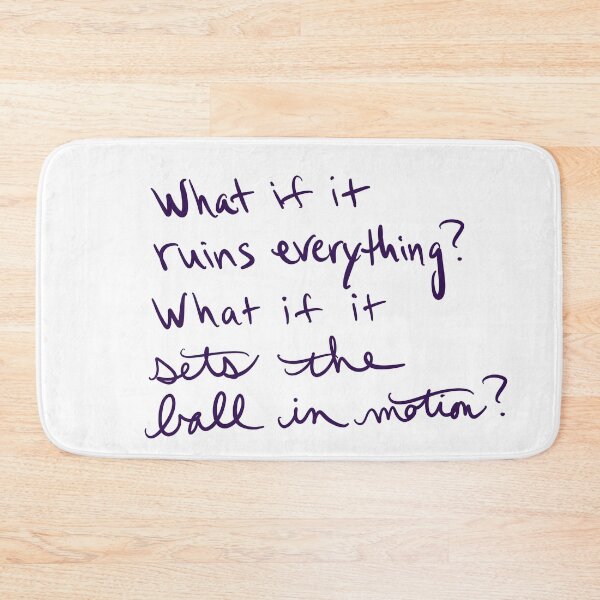 What if it
ruins everything?
What if it
sets the
ball in motion?